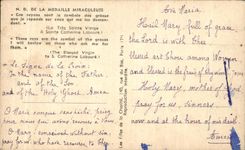 N. D. DE LA MÉDAILLE MIRACULEUSE
« Ces rayons sont le symbole des grâces
que je répands sur ceux qui me les deman-
dent. »
(La Très Sainte Vierge
à Sainte Catherine Labouré)
« These rays are the symbol of the graces
I will bestow on those who ask me for
them. »
(The Blessed Virgin
to S. Catherine Labouré)
Le Signe de la Croix.
In the name of the Father,
and of the Son
and of the Holy Ghost. Amen
O Marie conçue sans péché, priez
pour nous qui avons recours à Vous
O Mary, conceived without sin
pray for us who have recourse to Thee
Ave Maria
Hail Mary, full of grace
the Lord is with thee
Blessed art thou among Women
and blessed is the fruit of thy womb
Holy Mary, mother of God
pray for us, sinners
now and at the hour of our death
Amen